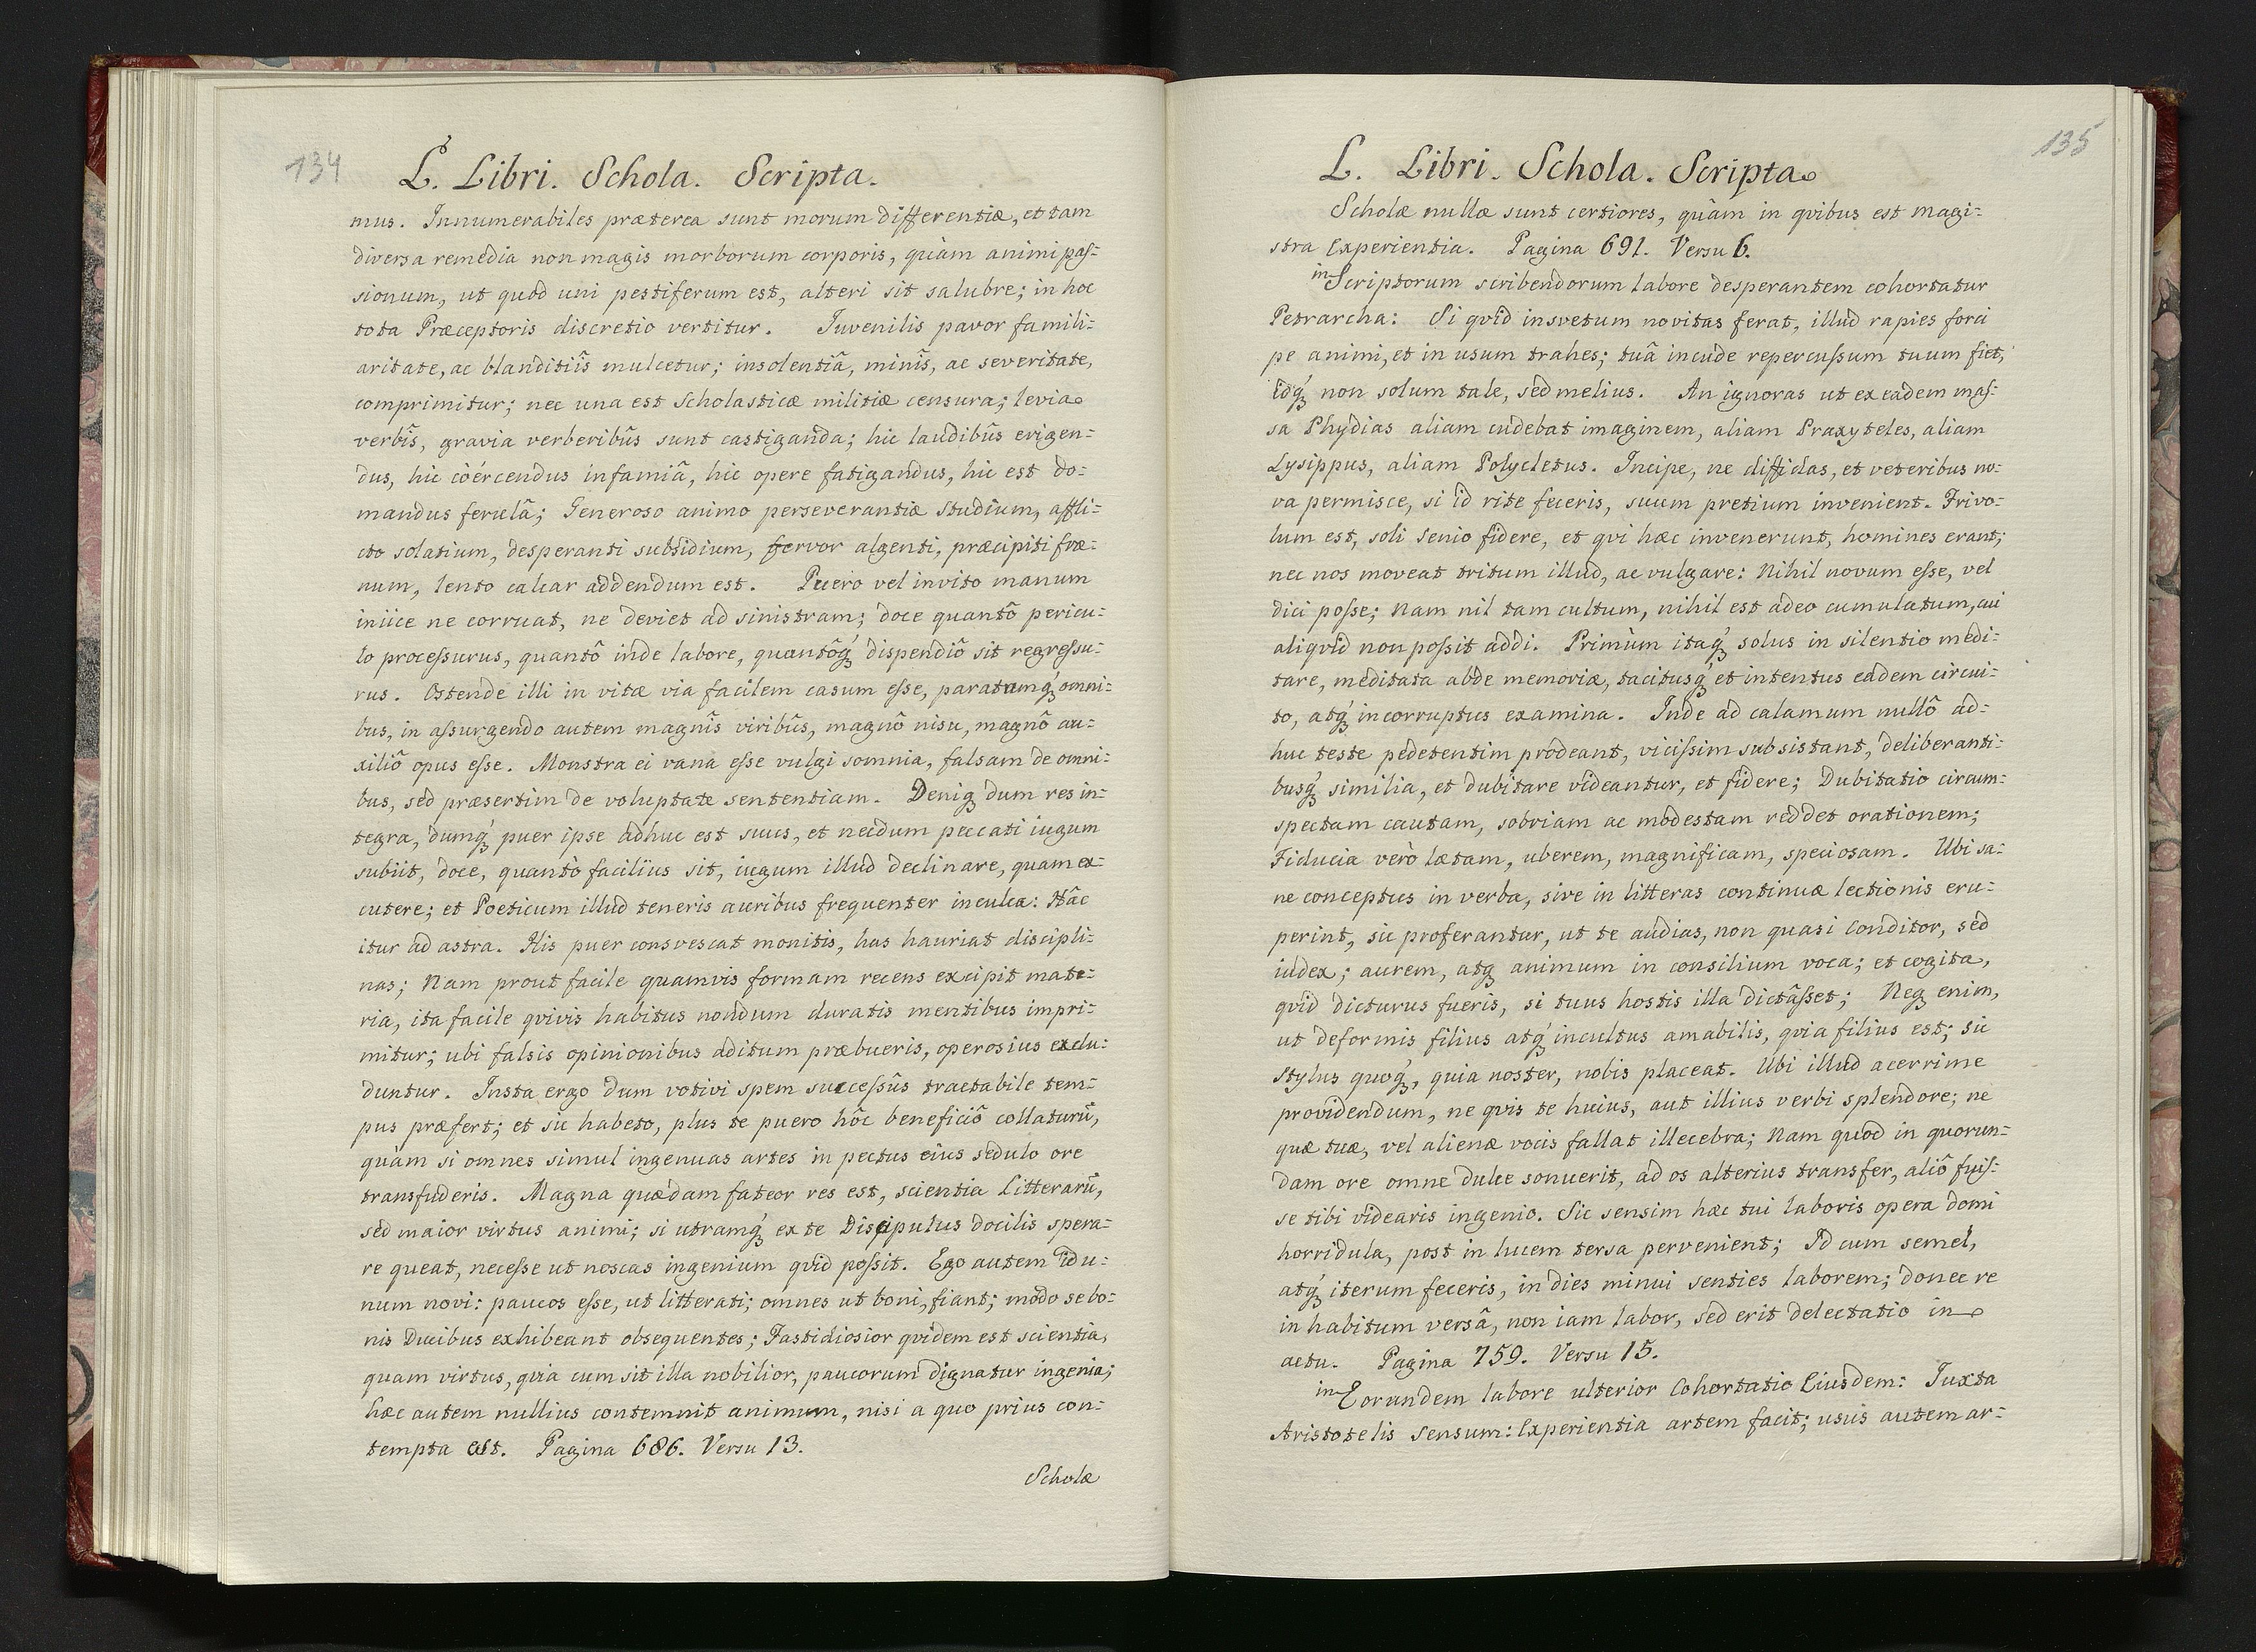 134
L. Libri. Schola. Scripta.
mus. Innumerabiles præterea sunt morum differentiæ, et tam
diversa remedia non magis morborum corporis, quàm animi pas-
sionum, ut quod uni pestiferum est, alteri sit salubre; in hoc
tota Præceptoris discretio vertitur. Iuvenilis pavor famili-
aritate, ac blanditiîs mulcetur; insolentiâ, minîs, ac severitate,
comprimitur; nec una est Scholasticæ militiæ censura; levia
verbîs, gravia verberibûs sunt castiganda; hic laudibûs erigen-
dus, hic coërcendus infamiâ, hic opere fatigandus, hic est do-
mandus ferulâ; Generoso animo perseverantiæ studium, affli-
cto solatium, desperanti subsidium, fervor algenti, præcipiti fræ-
num, lento calcar addendum est. Puero vel invito manum
iniice ne corruat, ne deviet ad sinistram; doce quantô pericu-
lo processurus, quantô inde labore, quantôq́ dispendiô sit regressu-
rus. Ostende illi in vitæ via facilem casum esse, paratumq́ omni-
bus, in assurgendo autem magnîs viribûs, magnô nisu, magnô au-
xiliô opus esse. Monstra ei vana esse vulgi somnia, falsam de omni-
bus, sed præsertim de voluptate sententiam. Deniq dum res in-
tegra, dumq́ puer ipse adhuc est suus, et necdum peccati iugum
subiit, doce, quantò facilius sit, iugum illud declinare, quam ex-
cutere; et Poeticum illud teneris auribus frequenter inculca: Hâc
itur ad astra. His puer consvescat monitis, has hauriat discipli-
nas; Nam prout facile quamvis formam recens excipit mate-
ria, ita facile qvivis habitus nondum duratis mentibus impri-
mitur; ubi falsis opinionibus aditum præbueris, operosius exclu-
duntur. Insta ergo dum votivi spem successûs tractabile tem-
pus præfert; et sic habeto, plus te puero hôc beneficiô collaturũ,
quàm si omnes simul ingenuas artes in pectus eius sedulo ore
transfuderis. Magna quædam fateor res est, scientia Litterarũ,
sed maior virtus animi; si utramq́ ex te Discipulus docilis spera-
re queat, necesse ut noscas ingenium qvid possit. Ego autem id u-
num novi: paucos esse, ut litterati; omnes ut boni, fiant; modo se bo-
nis Ducibus exhibeant obsequentes; Fastidiosior qvidem est scientia,
quam virtus, qvia cum sit illa nobilior, paucorum dignatur ingenia;
hæc autem nullius contemnit animum, nisi a quo prius con-
tempta est. Pagina 686. Versu 13.
Scholæ
135
L. Libri. Schola. Scripta
Scholæ nullæ sunt certiores, quàm in qvibus est magi-
stra Experientia. Pagina 691. Versu 6.
in Scriptorum scribendorum labore desperantem cohortatur
Petrarcha: Si qvid insvetum novitas ferat, illud rapies forci
pe animi, et in usum trahes; tuâ incude repercussum tuum fiet,
idq́ non solum tale, sed melius. An ignoras ut ex eadem mas-
sa Phydias aliam cudebat imaginem, aliam Praxyteles, aliam
Lysippus, aliam Polycletus. Incipe, ne diffidas, et veteribus no-
va permisce, si id rite feceris, suum pretium invenient. Frivo-
lum est, soli senio fidere, et qvi hæc invenerunt, homines erant;
nec nos moveat tritum illud, ac vulgare: Nihil novum esse, vel
dici posse; Nam nil tam cultum, nihil est adeo cumulatum, cui
aliqvid non possit addi. Primùm itaq́ solus in silentio medi-
tare, meditata abde memoriæ, tacitusq́ et intentus eadem circui-
to, atq́ incorruptus examina. Inde ad calamum nullô ad-
huc teste pedetentim prodeant, vicissim subsistant, deliberanti-
busq́ similia, et dubitare videantur, et fidere; Dubitatio circum-
spectam cautam, sobriam ac modestam reddet orationem;
Fiducia verò lætam, uberem, magnificam, speciosam. Ubi sa-
ne conceptus in verba, sive in litteras continuæ lectionis eru-
perint, sic proferantur, ut te audias, non quasi Conditor, sed
iudex; aurem, atq animum in consilium voca; et cogita,
qvid dicturus fueris, si tuus hostis illa dictâsset; Neq enim,
ut deformis filius atq́ incultus amabilis, qvia filius est; sic
Stylus quoq́, quia noster, nobis placeat. Ubi illud acerrime
providendum, ne qvis te huius, aut illius verbi splendore; ne
quæ tuæ, vel alienæ vocis fallat illecebra; Nam quod in quorun-
dam ore omne dulce sonuerit, ad os alterius transfer, aliô fuis-
se tibi videaris ingenio. Sic sensim hæc tui laboris opera domi
horridula, post in lucem tersa pervenient; Id cum semel,
atq́ iterum feceris, in dies minui senties laborem; donec re
in habitum versâ, non iam labor, sed erit delectatio in
actu. Pagina 759. Versu 15.
in Eorundem labore ulterior Cohortatio Eiusdem: Iuxta
Aristotelis sensum: Experientia artem facit; usus autem ar-